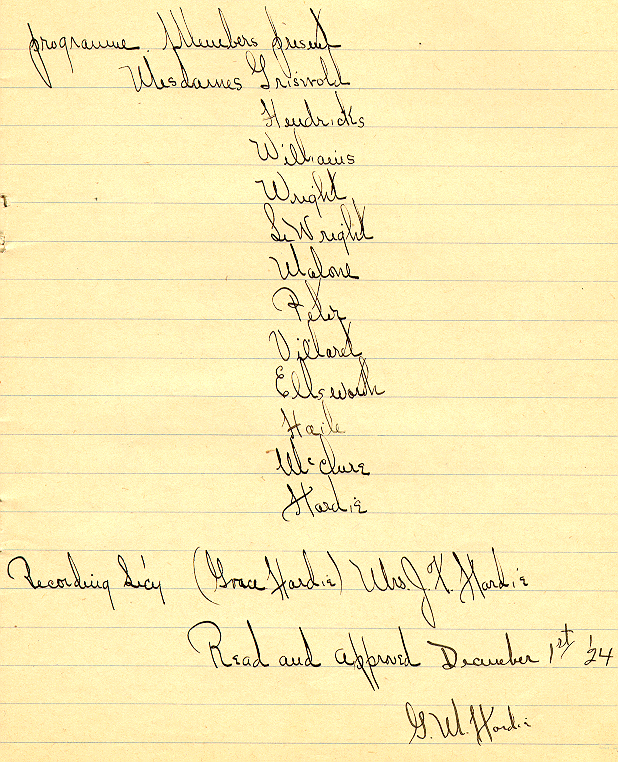 programme. Members present
Mesdames Griswold
Hendricks
Williams
Wright
LeWright
Malone
Peter
Villard
Ellsworth
Haile
McClure
Hardie
Recording Sec'y (Grace Hardie) Mrs. J. K. Hardie
Read and approved December 1st '24
G. M. Hardie